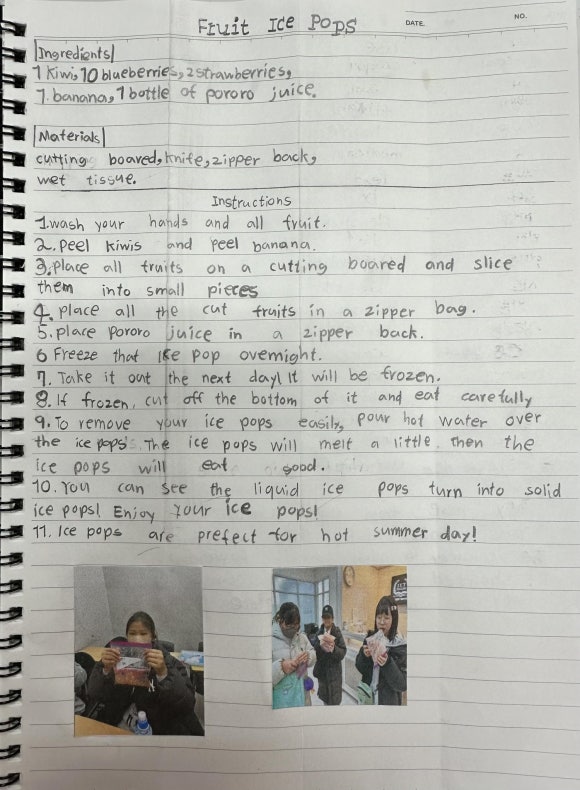 Fruit Ice Pops
DATE.
NO.
Ingredients
1 kiwi, 10 blueberries, 2 strawberries,
1. banana, 1 bottle of pororo juice.
Materials
cutting boared, knife, zipper back,
wet tissue.
Instructions
1. wash your hands and all fruit.
2. Peel kiwis and peel banana.
3. Place all fruits on a cutting boared and slice
them into small pieces
4. place all the cut fruits in a zipper bag.
5. place Pororo juice in a zipper back.
6 Freeze that ice pop overnight.
7. Take it out the next day! It will be frozen.
8. If frozen, cut off the bottom of it and eat carefully
9. To remove your ice pops easily, pour hot water over
the ice pops. The ice pops will melt a little. then the
ice pops will eat good.
10. You can see the liquid ice pops turn into solid
ice pops! Enjoy your ice pops!
11. Ice pops are prefect for hot summer day!